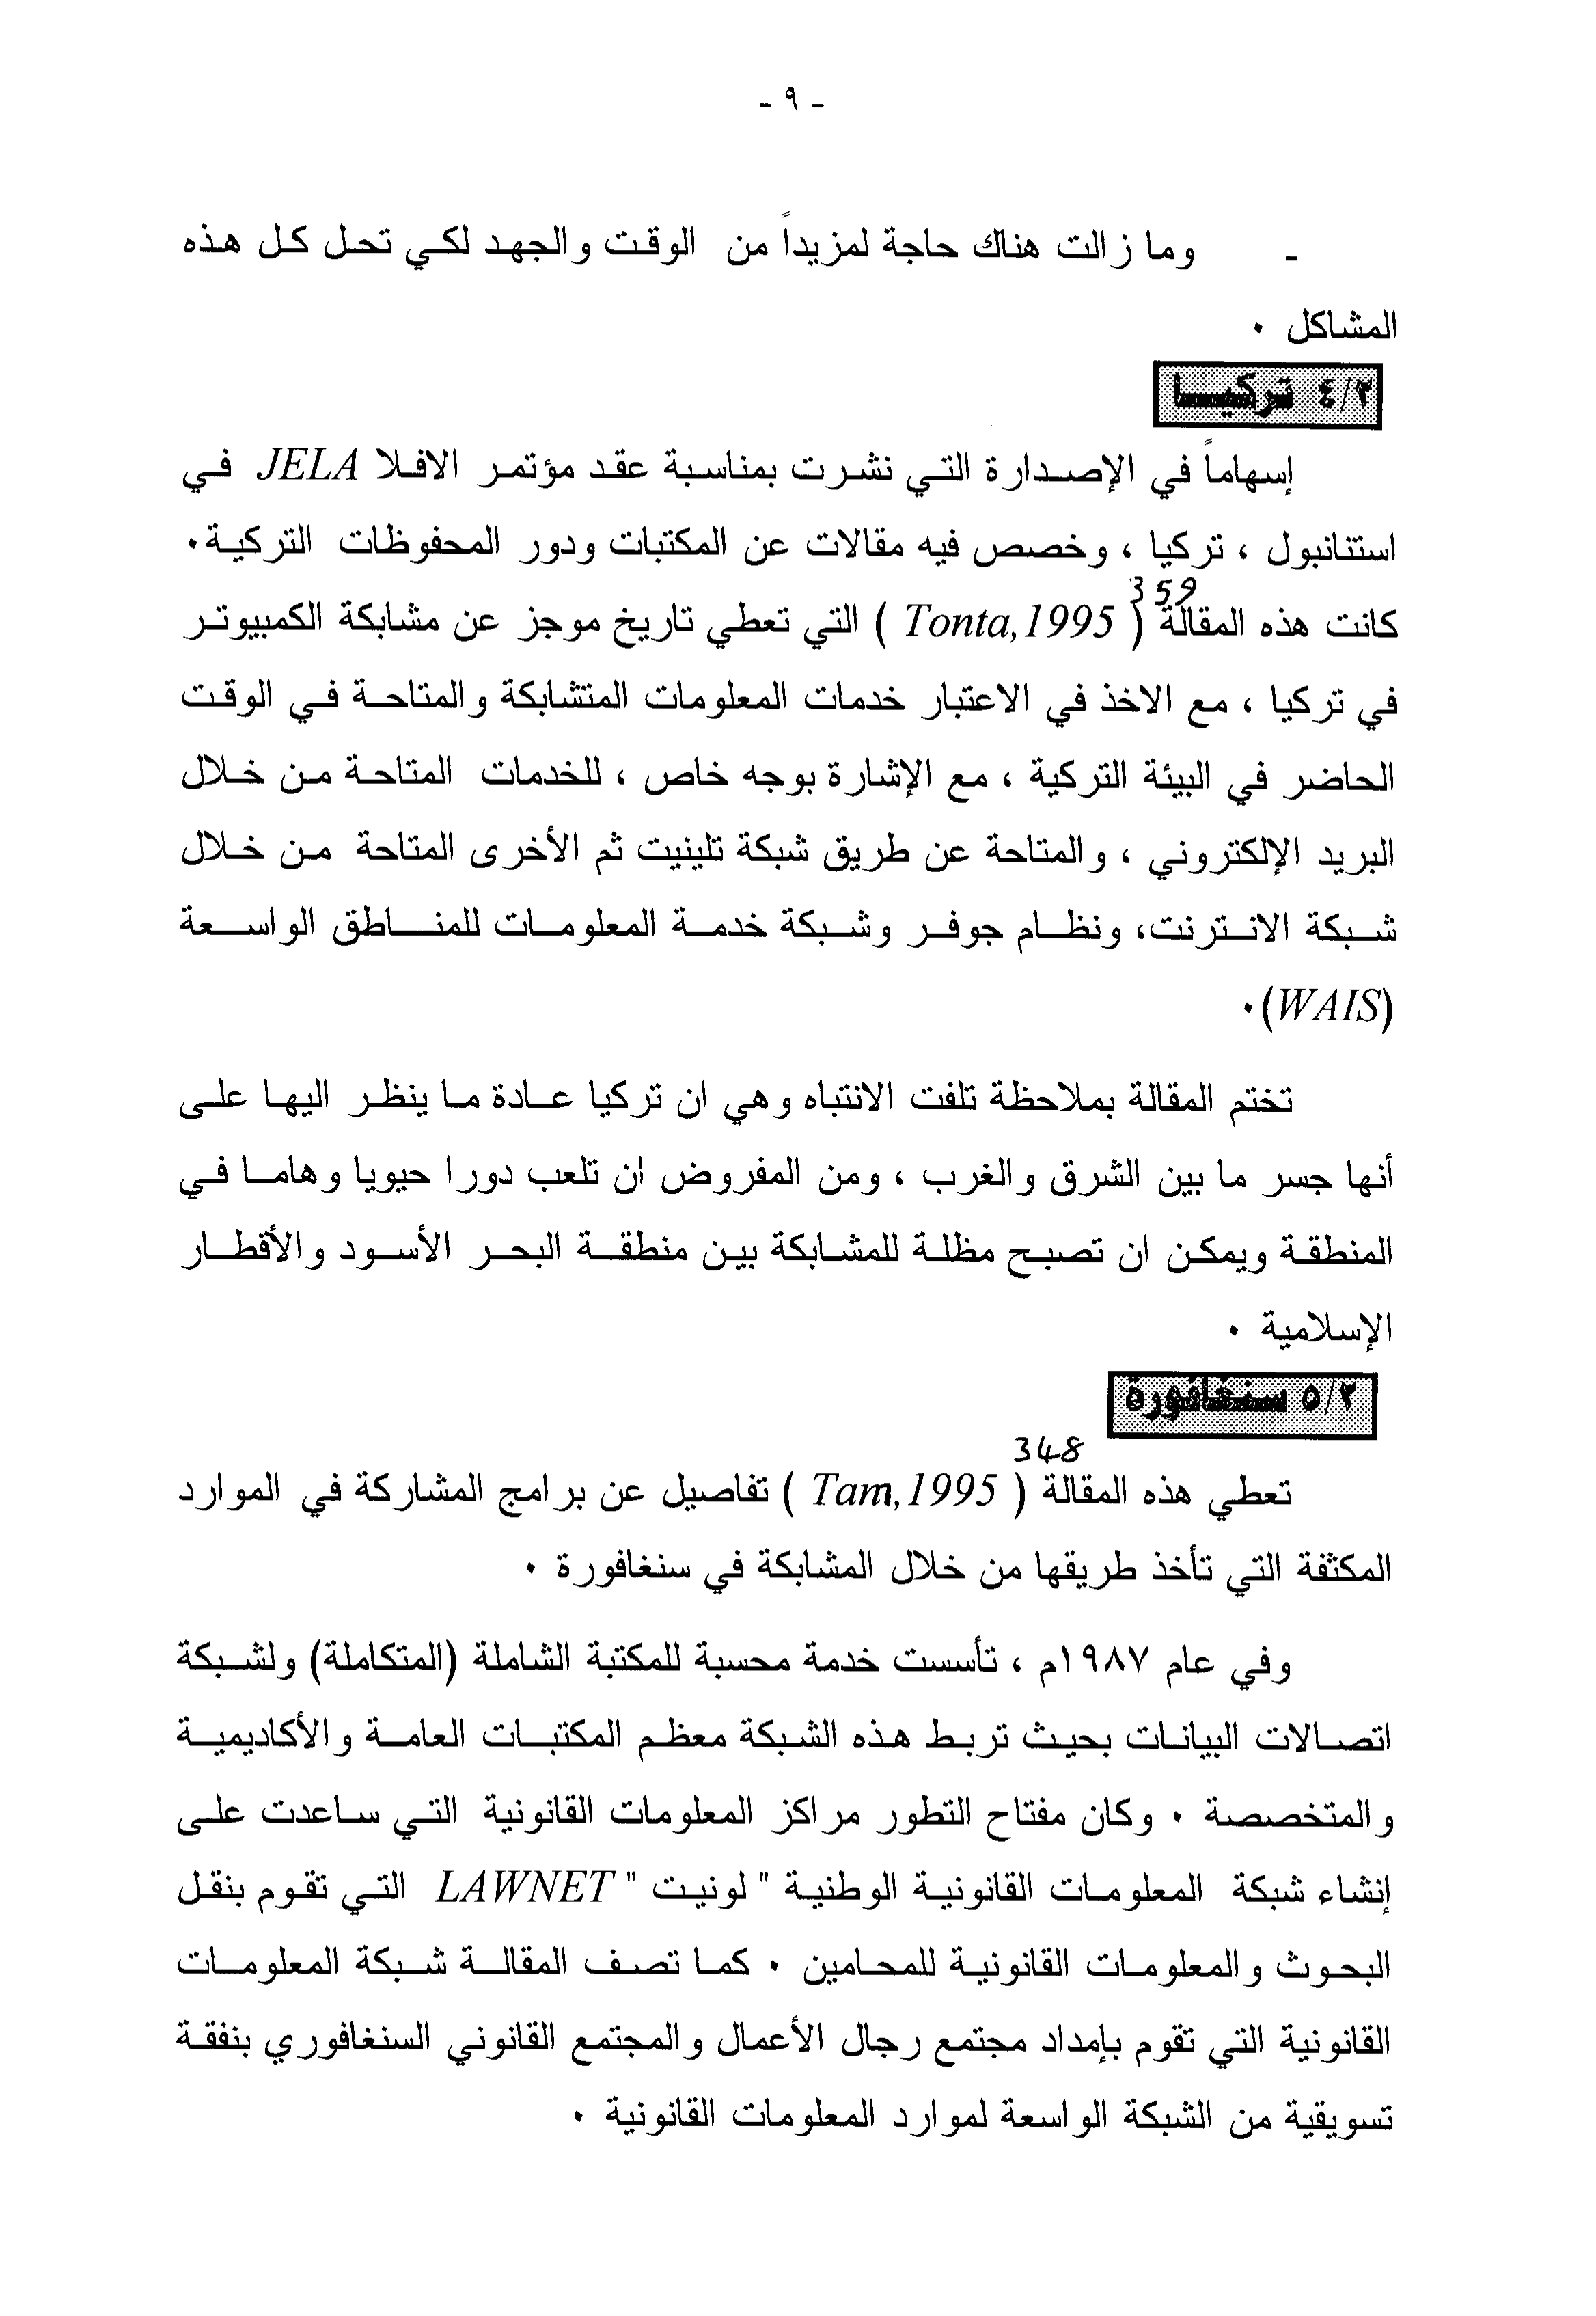 - ٩ -
- وما زالت هناك حاجة لمزيداً من الوقت والجهد لكي تحل كل هذه
المشاكل ٠
٤/٢ تركيا
إسهاماً في الإصدارة التي نشرت بمناسبة عقد مؤتمر الافلا JELA في
استتانبول ، تركيا ، وخصص فيه مقالات عن المكتبات ودور المحفوظات التركية٠
359
كانت هذه المقالة ( Tonta,1995 ) التي تعطي تاريخ موجز عن مشابكة الكمبيوتر
في تركيا ، مع الاخذ في الاعتبار خدمات المعلومات المتشابكة والمتاحة في الوقت
الحاضر في البيئة التركية ، مع الإشارة بوجه خاص ، للخدمات المتاحة من خلال
البريد الإلكتروني ، والمتاحة عن طريق شبكة تلينيت ثم الأخرى المتاحة من خلال
شبكة الانترنت، ونظام جوفر وشبكة خدمة المعلومات للمناطق الواسعة
(WAIS)٠
تختم المقالة بملاحظة تلفت الانتباه وهي ان تركيا عادة ما ينظر اليها على
أنها جسر ما بين الشرق والغرب ، ومن المفروض ان تلعب دورا حيويا وهاما في
المنطقة ويمكن ان تصبح مظلة للمشابكة بين منطقة البحر الأسود والأقطار
الإسلامية ٠
٥/٢ سنغافورة
348
تعطي هذه المقالة ( Tam,1995 ) تفاصيل عن برامج المشاركة في الموارد
المكثفة التي تأخذ طريقها من خلال المشابكة في سنغافورة ٠
وفي عام ١٩٨٧م ، تأسست خدمة محسبة للمكتبة الشاملة (المتكاملة) ولشبكة
اتصالات البيانات بحيث تربط هذه الشبكة معظم المكتبات العامة والأكاديمية
والمتخصصة ٠ وكان مفتاح التطور مراكز المعلومات القانونية التي ساعدت على
إنشاء شبكة المعلومات القانونية الوطنية " لونيت " LAWNET التي تقوم بنقل
البحوث والمعلومات القانونية للمحامين ٠ كما تصف المقالة شبكة المعلومات
القانونية التي تقوم بإمداد مجتمع رجال الأعمال والمجتمع القانوني السنغافوري بنفقة
تسويقية من الشبكة الواسعة لموارد المعلومات القانونية ٠